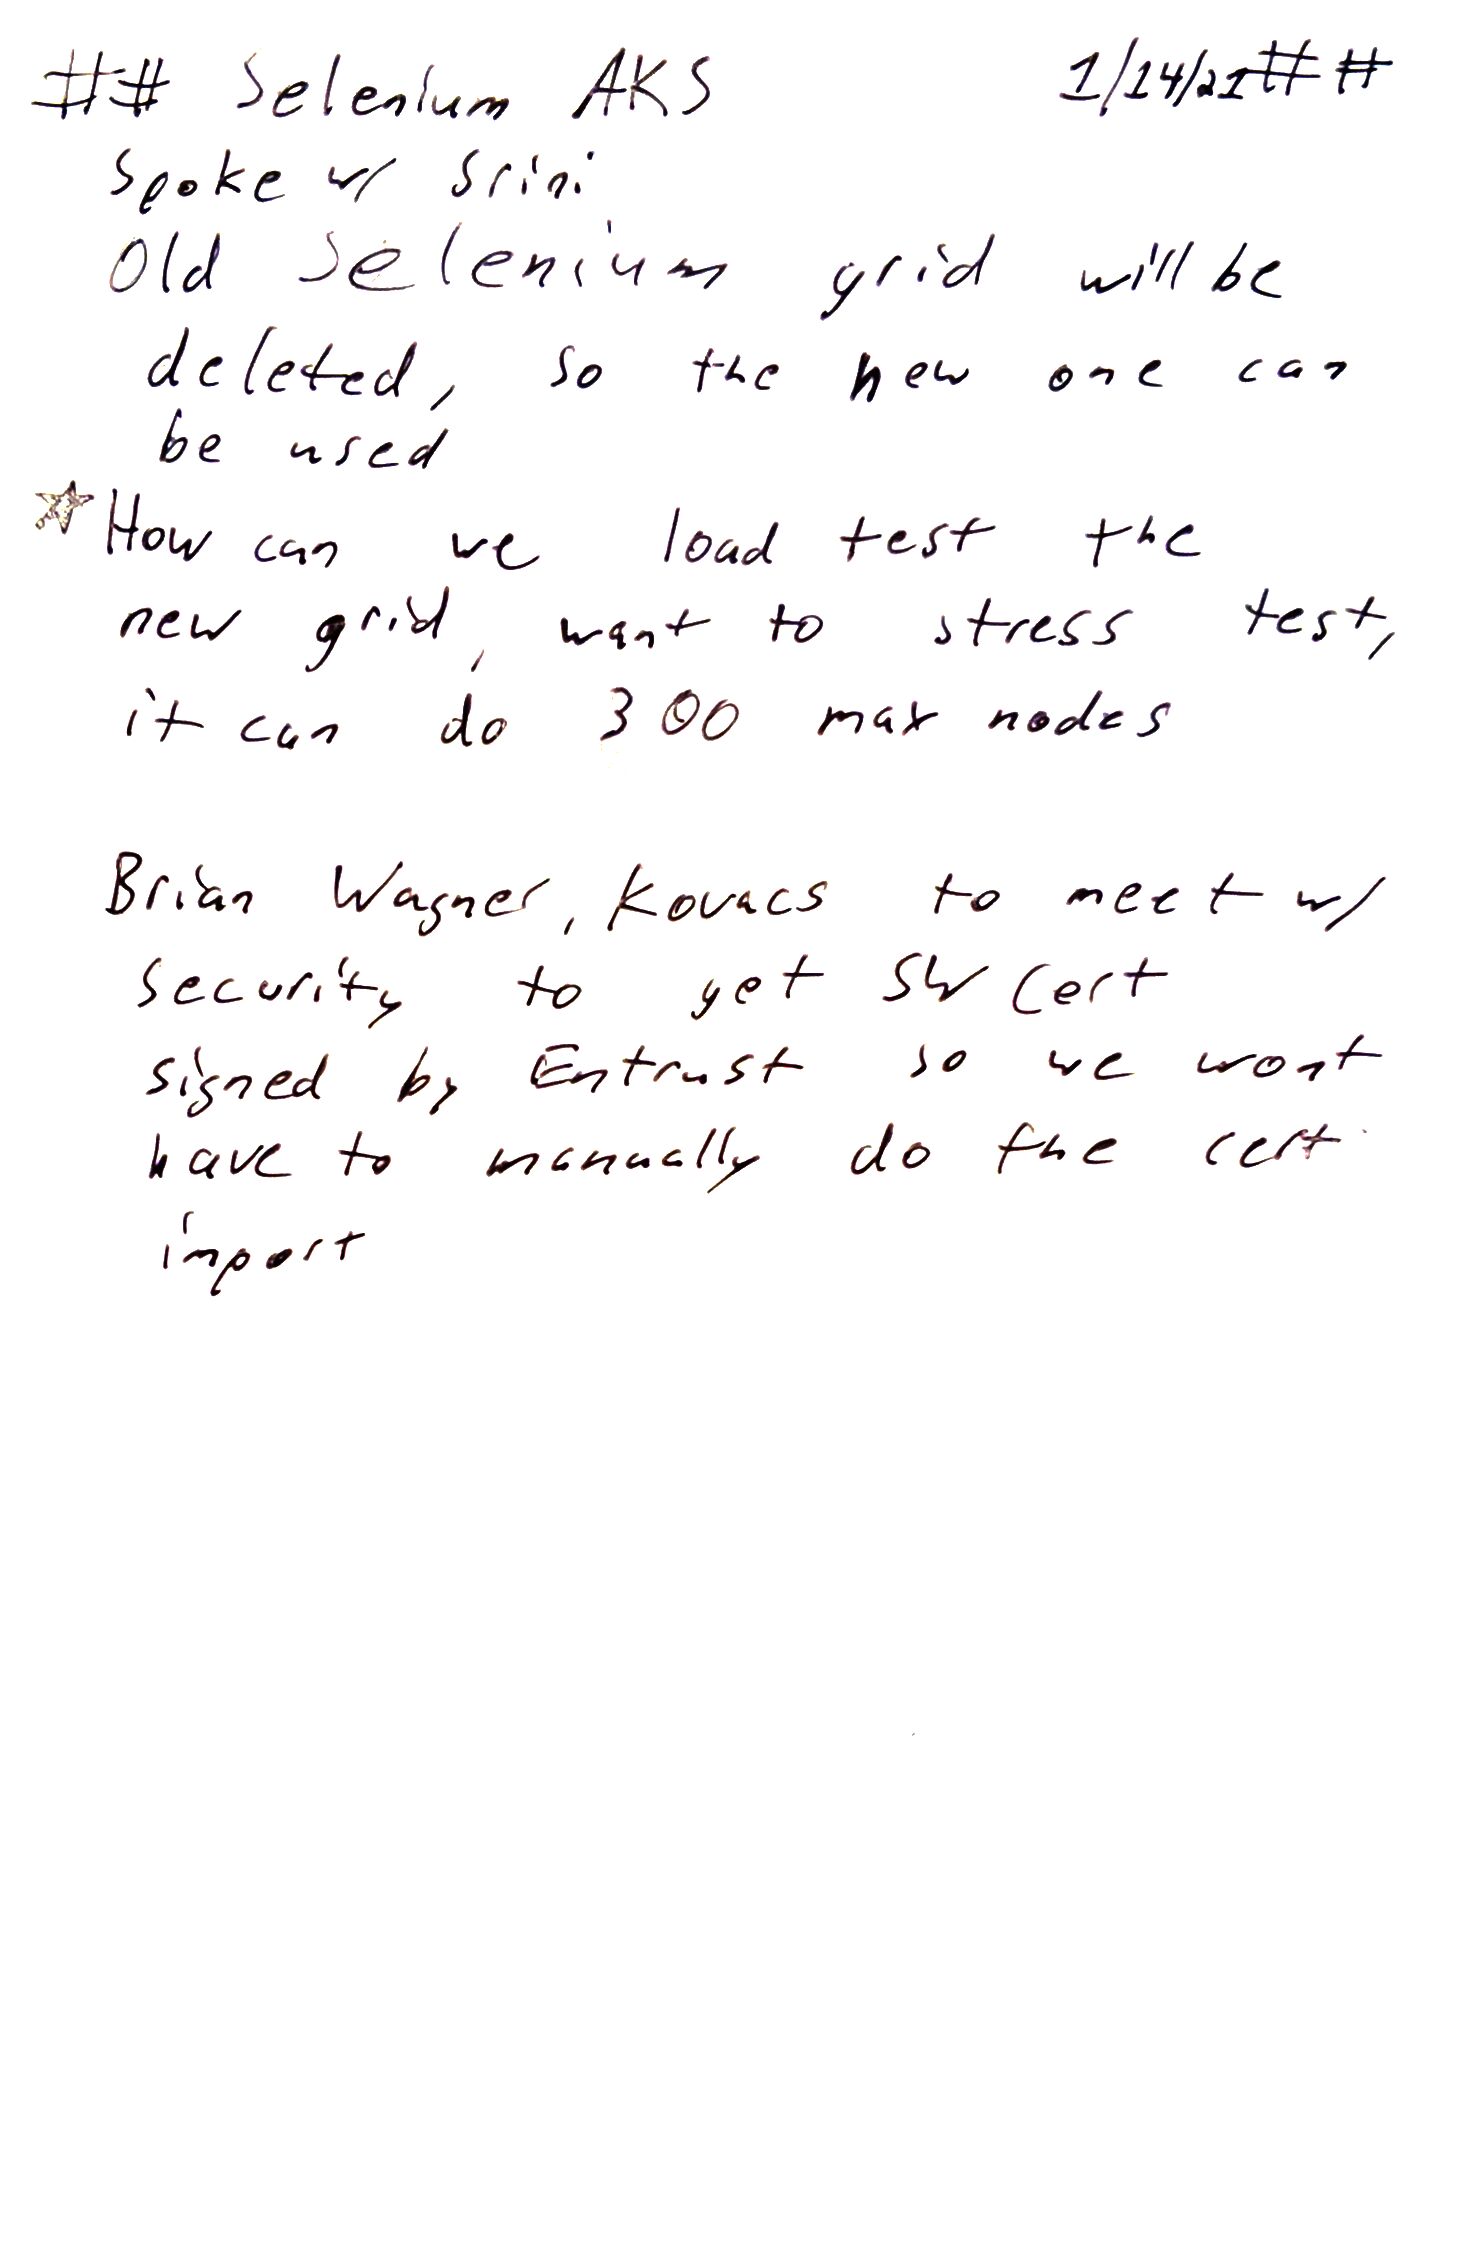 ## Selenium AKS 1/14/21##
Spoke w/ Srini
Old Selenium grid will be
deleted, so the new one can
be used
☆How can we load test the
new grid, want to stress test,
it can do 300 max nodes
Brian Wagner, Kovacs to meet w/
security to get SW Cert
signed by Entrust so we wont
have to manually do the cert
import